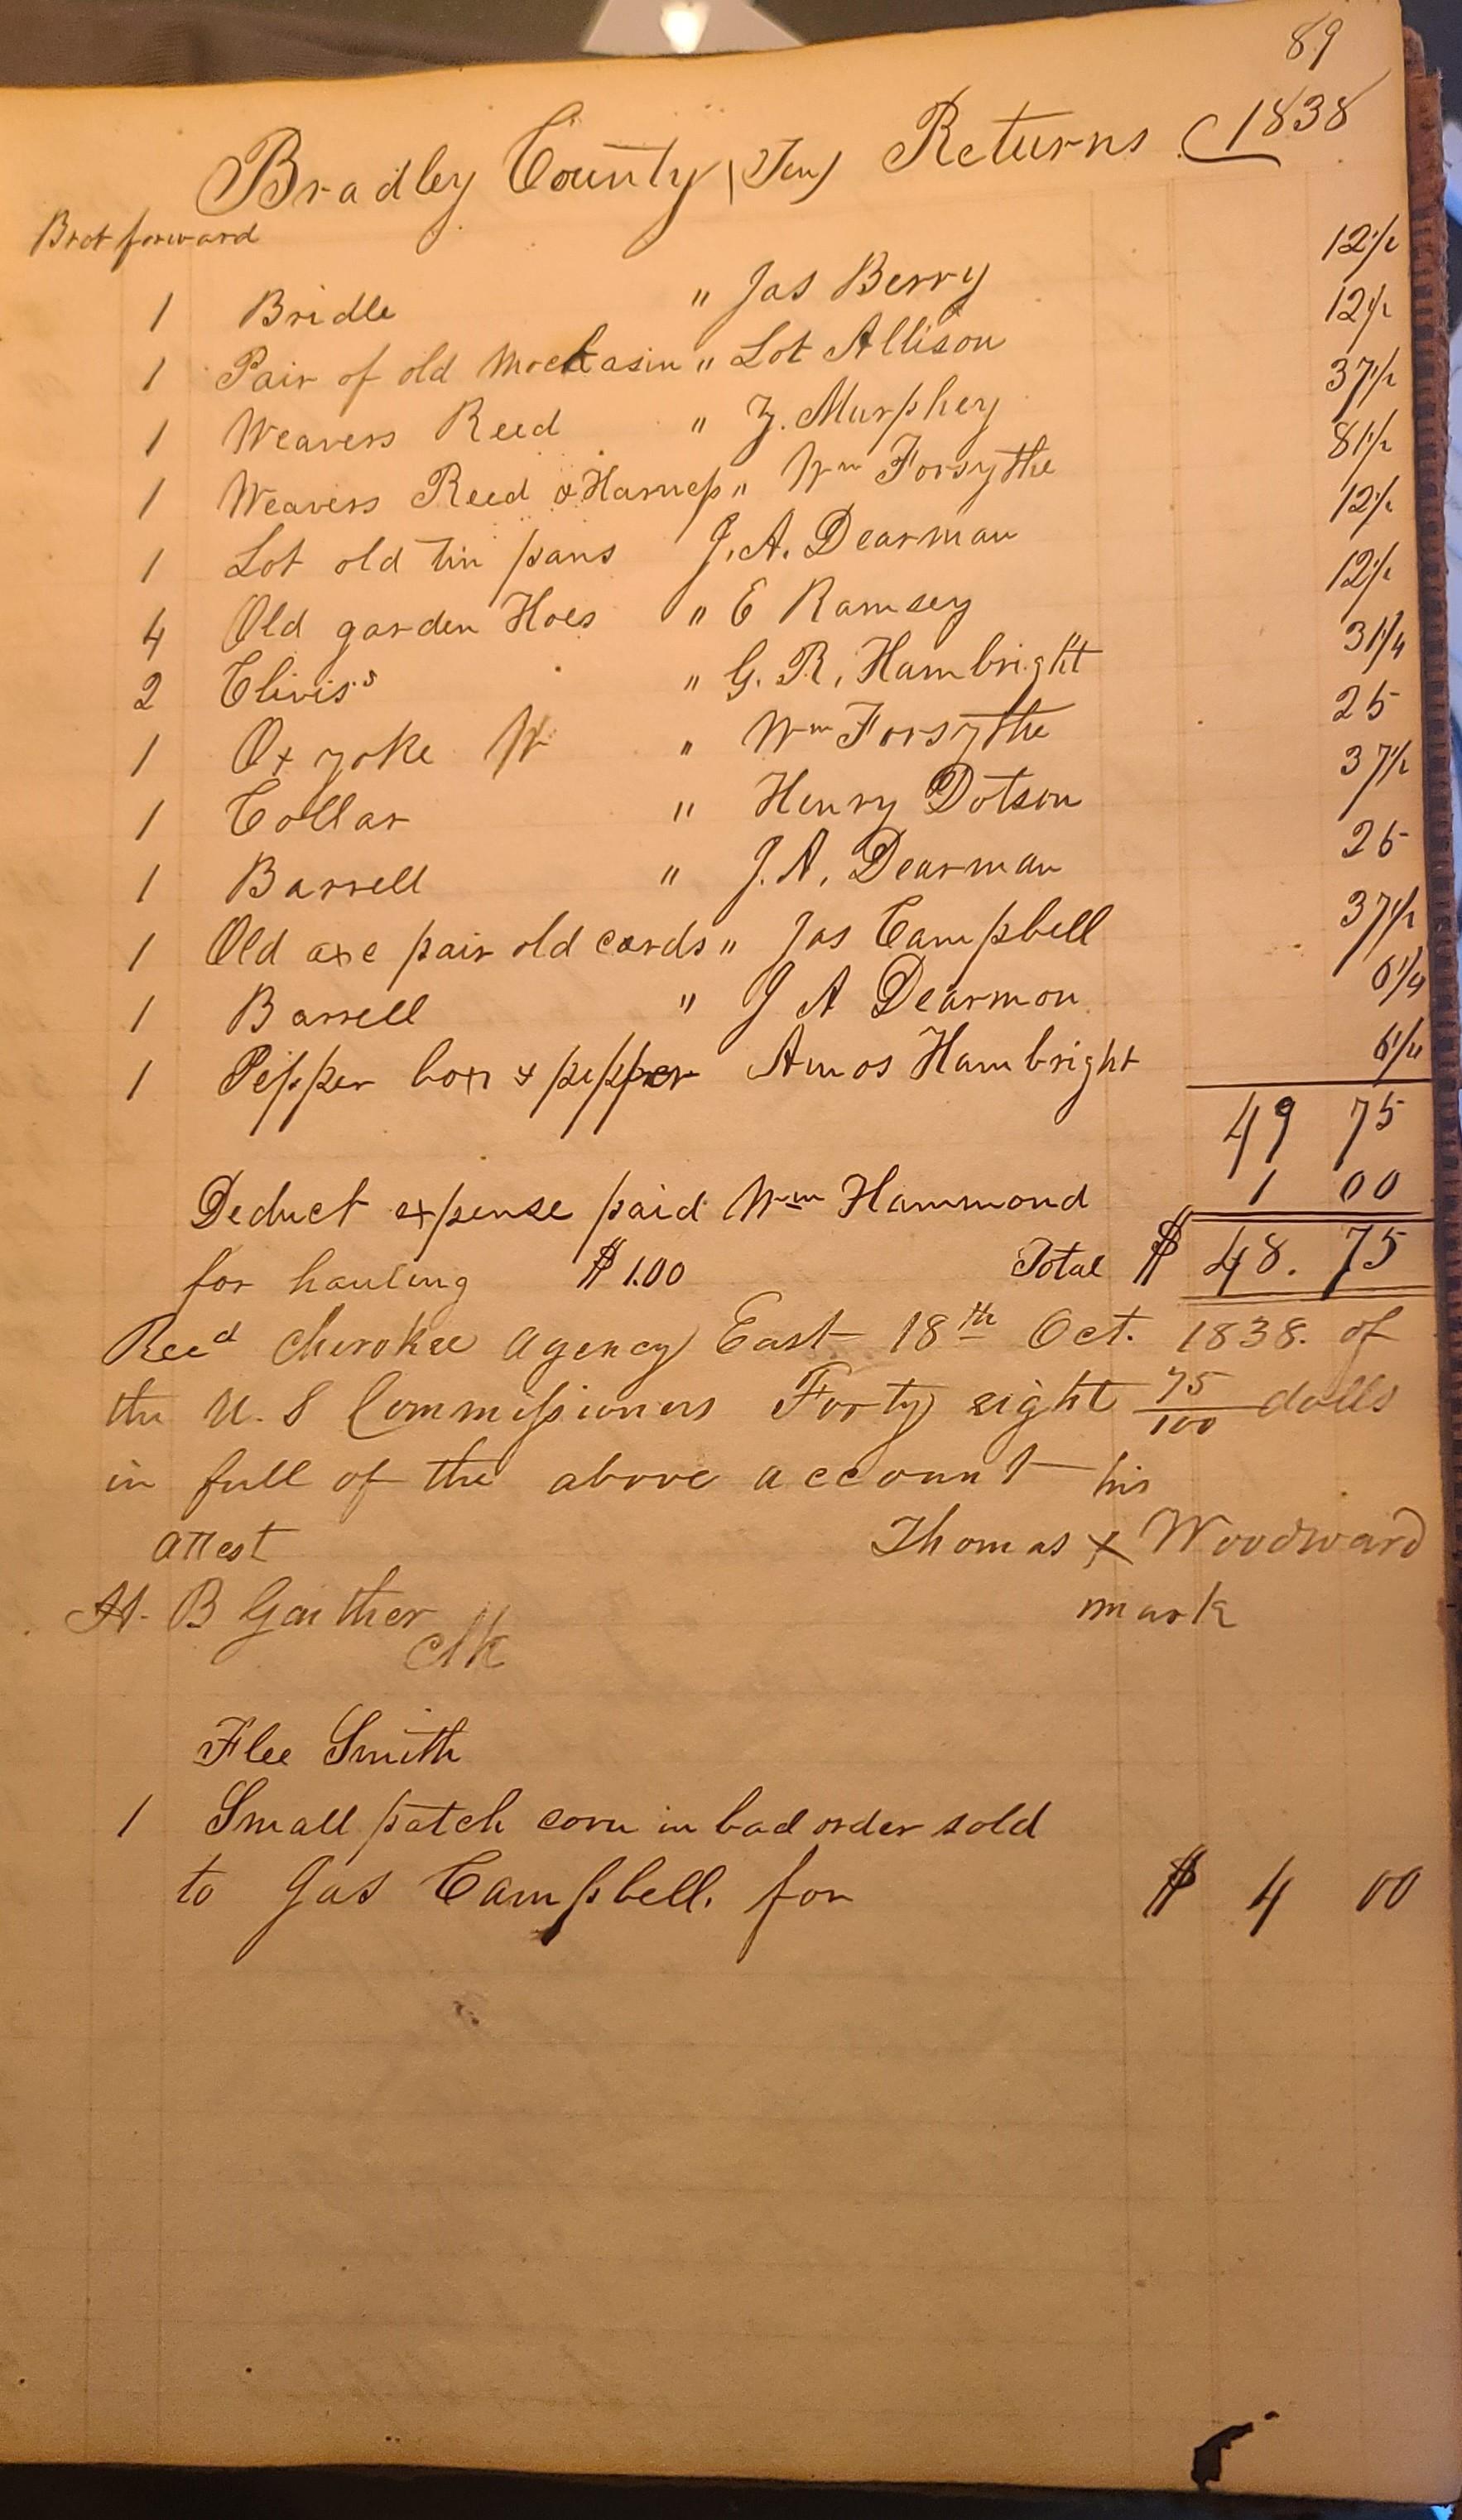 89
Bradley County (Ten) Returns 1838
Brot forward
1 Bridle " Jas Berry 12 1/2
1 Pair of old Mockasin " Lot Allison 12 1/2
1 Weavers Reed " Z. Murphey 37 1/2
1 Weavers Reed & Harness " Wm Forsythe 81 1/2
1 Lot old tin pans J. A. Dearman 12 1/2
4 Old garden Hoes " E Ramsey 12 1/2
2 Clivis's " G. R. Hambright 31 1/4
1 Ox yoke W " Wm Forsythe 25
1 Collar " Henry Dotson 37 1/2
1 Barrell " J. A. Dearman 25
1 Old axe pair old cards " Jas Campbell 37 1/2
1 Barrell " J A Dearmon 6 1/4
1 Pepper box & pepper Amos Hambright 6 1/4
49 75
Deduct expense paid Wm Hammond 1 00
for hauling $1.00 Total $ 48. 75
Recd Cherokee Agency East 18th Oct. 1838. of
the U. S Commissioners Forty eight 75/100 dolls
in full of the above account his
Attest Thomas x Woodward
A. B Gaither mark
Clk
Flee Smith
1 Small patch corn in bad order sold
to Jas Campbell. for $ 4 00